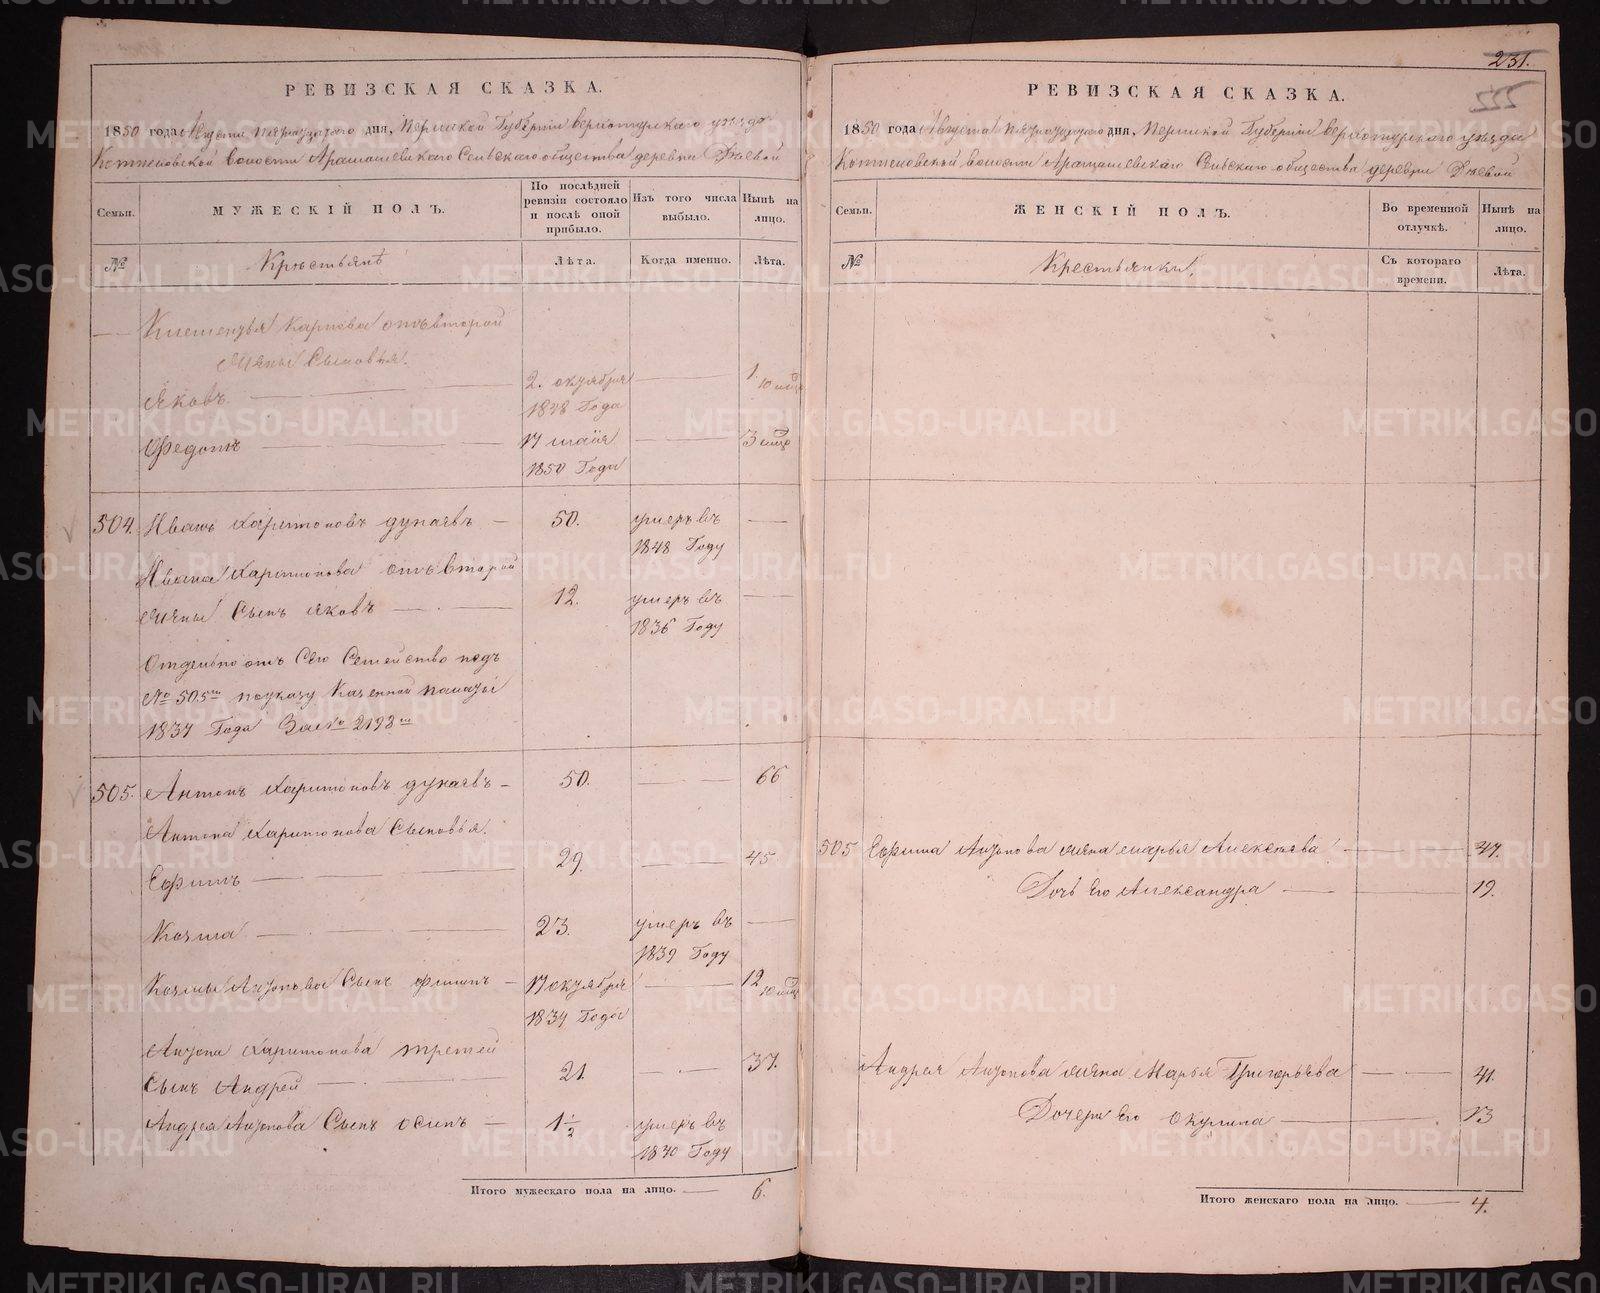 РЕВИЗСКАЯ СКАЗКА.
1850 года Августа Пятнадцатого дня, Пермской Губернии верхотурскаго уезда
волости Арамашевскаго Сельскаго общества деревни
Семьи.
МУЖЕСКІЙ ПОЛЪ.
По послѣдней ревизіи состояло и послѣ оной прибыло.
Изъ того числа выбыло.
Нынѣ на лицо.
№
Крестьянѣ
Лѣта.
Когда именно.
Лѣта.
Климентья Карпова отъ второй
жены Сыновья.
Яковъ 2. октября 1848 Года 1. 10 мцъ
Федотъ 17 майя 1850 Года 3 мцъ
504. Иванъ Харитоновъ дунаевъ 50. умеръ въ 1848 Году
Ивана Харитонова отъ второй
жены Сынъ Яковъ 12. умеръ въ 1836 Году
Отдельно отъ Сего Семейство подъ
№ 505м по указу Казенной палаты
1837 Года За № 2193м
505. Антонъ Харитоновъ дунаевъ 50. 66
Антона Харитонова Сыновья.
Ефимъ 29. 45.
Козма 23. умеръ въ 1839 Году
Козмы Антонова Сынъ филипъ 17 октября 1837 Года 12 10 мцъ
Антона Харитонова третей
сынъ Андрей 21. 37.
Андрея Антонова Сынъ осипъ 1½ умеръ въ 1840 Году
Итого мужескаго пола на лицо. 6.
231.
222
РЕВИЗСКАЯ СКАЗКА.
1850 года Августа Пятнадцатого дня, Пермской Губернии верхотурскаго уезда
волости Арамашевскаго Сельскаго общества деревни
Семьи.
ЖЕНСКІЙ ПОЛЪ.
Во временной отлучкѣ.
Нынѣ на лицо.
№
Крестьянки.
Съ котораго времени.
Лѣта.
505 Ефима Антонова жена марья Алексеева 47.
Дочь Его Александра 19.
Андрея Антонова жена Марья Григорьева 41.
Дочери Его окулина 13
Итого женскаго пола на лицо. 4.
METRIKI.GASO-URAL.RU